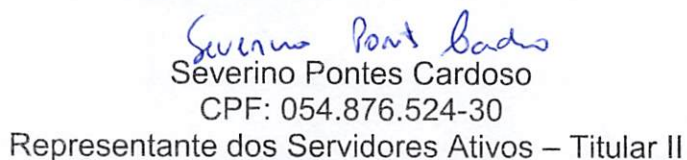 Severino Pont Cardo
Severino Pontes Cardoso
CPF: 054.876.524-30
Representante dos Servidores Ativos – Titular II